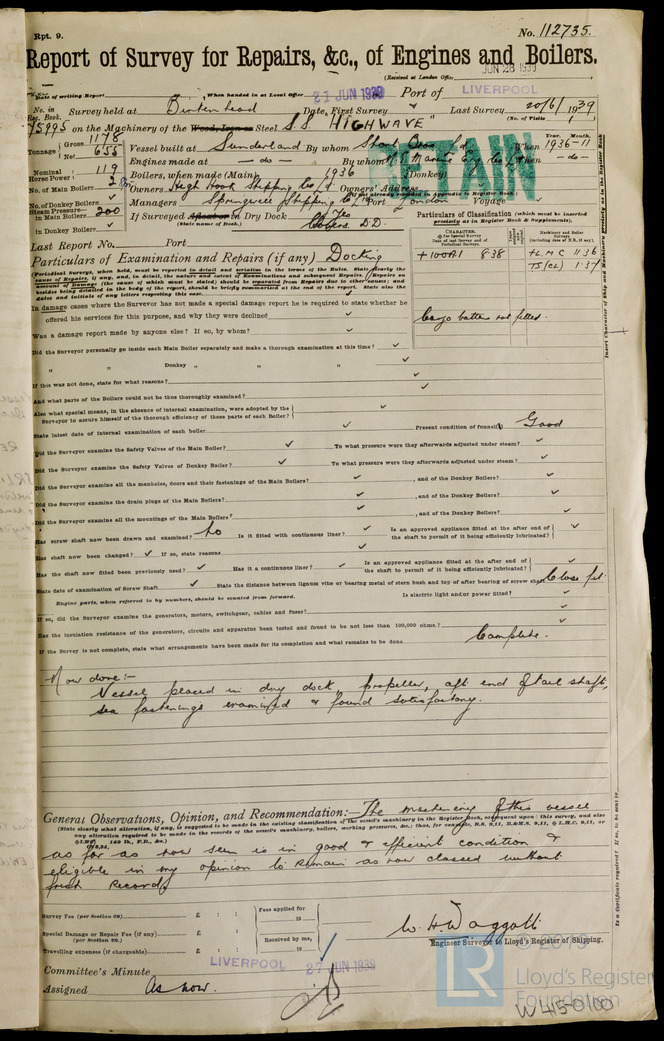 Rpt. 9.
No. 112735.
Report of Survey for Repairs, &c., of Engines and Boilers.
(Received at London Office JUN 28 1939)
Date of writing Report When handed in at Local Office 21 JUN 1939 Port of LIVERPOOL
No. in Reg. Book. Survey held at Birkenhead Date, First Survey Last Survey 20/6/1939
(No. of Visits )
75995 on the Machinery of the Wood, Iron or Steel S.S "HIGHWAVE"
RETAIN
Tonnage Gross 1178 Net 655
Vessel built at Sunderland By whom When 1936-11
Year. Month.
Engines made at — do — By whom When — do —
Nominal Horse Power 119
Boilers, when made (Main) 1936 (Donkey)
No. of Main Boilers 2
Owners High Hook Shipping Co Ld Owners' Address
(If not already recorded in Appendix to Register Book.)
No. of Donkey Boilers ✓
Managers Springwell Shipping Co Ld Port London Voyage
Steam Pressure in Main Boilers 200
If Surveyed Afloat or in Dry Dock Yes
(State name of Dock.) D.D.
in Donkey Boilers ✓
Particulars of Classification (which must be inserted precisely as in Register Book & Supplements).
CHARACTER.
+100A1 8.38
+L.M.C 11.36
TS(CL) 1.37
Cargo battens not fitted.
Last Report No. Port
Particulars of Examination and Repairs (if any) Docking
(Periodical Survey, when held, must be reported in detail and seriatim in the terms of the Rules. State clearly the
cause of Repairs, if any, and, in detail, the nature and extent of Examinations and subsequent Repairs. Repairs on
amount of Damage (the cause of which must be stated) should be separated from Repairs due to other causes; and
besides being detailed in the body of the report, should be briefly summarised at the end of the report. State also the
dates and initials of any letters respecting this case.
In damage cases where the Surveyor has not made a special damage report he is required to state whether he
offered his services for this purpose, and why they were declined ✓
Was a damage report made by anyone else? If so, by whom? ✓
Did the Surveyor personally go inside each Main Boiler separately and make a thorough examination at this time? ✓
" " Donkey " " " ✓
If this was not done, state for what reasons? ✓
And what parts of the Boilers could not be thus thoroughly examined? ✓
Also what special means, in the absence of internal examination, were adopted by the
Surveyor to assure himself of the thorough efficiency of those parts of each Boiler? ✓
State latest date of internal examination of each boiler ✓ Present condition of funnel(s) Good
Did the Surveyor examine the Safety Valves of the Main Boiler? ✓ To what pressure were they afterwards adjusted under steam? ✓
Did the Surveyor examine the Safety Valves of Donkey Boiler? ✓ To what pressure were they afterwards adjusted under steam? ✓
Did the Surveyor examine all the manholes, doors and their fastenings of the Main Boilers? ✓ , and of the Donkey Boilers? ✓
Did the Surveyor examine the drain plugs of the Main Boilers? ✓ , and of the Donkey Boilers? ✓
Did the Surveyor examine all the mountings of the Main Boilers? ✓ , and of the Donkey Boilers? ✓
Has screw shaft now been drawn and examined? No Is it fitted with continuous liner? ✓ Is an approved appliance fitted at the after end of
the shaft to permit of it being efficiently lubricated? ✓
Has shaft now been changed? ✓ If so, state reasons ✓
Has the shaft now fitted been previously used? ✓ Has it a continuous liner? ✓ Is an approved appliance fitted at the after end of
the shaft to permit of it being efficiently lubricated? ✓
State date of examination of Screw Shaft ✓ State the distance between lignum vitæ or bearing metal of stern bush and top of after bearing of screw shaft Close fit
Engine parts, when referred to by numbers, should be counted from forward. Is electric light and/or power fitted? ✓
If so, did the Surveyor examine the generators, motors, switchgear, cables and fuses? ✓
Has the insulation resistance of the generators, circuits and apparatus been tested and found to be not less than 100,000 ohms? ✓
If the Survey is not complete, state what arrangements have been made for its completion and what remains to be done Complete.
Now done:-
Vessel placed in dry dock propeller, aft end of tail shaft,
sea fastenings examined & found satisfactory.
General Observations, Opinion, and Recommendation:— The machinery of this vessel
(State clearly what alteration, if any, is suggested to be made in the existing classification of the vessel's machinery in the Register Book, consequent upon this survey, and also
any alteration required to be made in the records of the vessel's machinery, boilers, working pressures, &c.; thus, for example,
as far as now seen is in good & efficient condition &
eligible in my opinion to remain as now classed without
fresh record.
Survey Fee (per Section 29) £ : :
Fees applied for 19
Special Damage or Repair Fee (if any) (per Section 29.) £ : :
Received by me, 19
Travelling expenses (if chargeable) £ : :
W. H. Waggott
Engineer Surveyor to Lloyd's Register of Shipping.
Committee's Minute LIVERPOOL 27 JUN 1939
Assigned As now.
Insert Character of Ship and Machinery precisely as in the Register Book
Is a Certificate required? If so, to be sent to
LR
© 2019
Lloyd's Register
Foundation
W415-0100